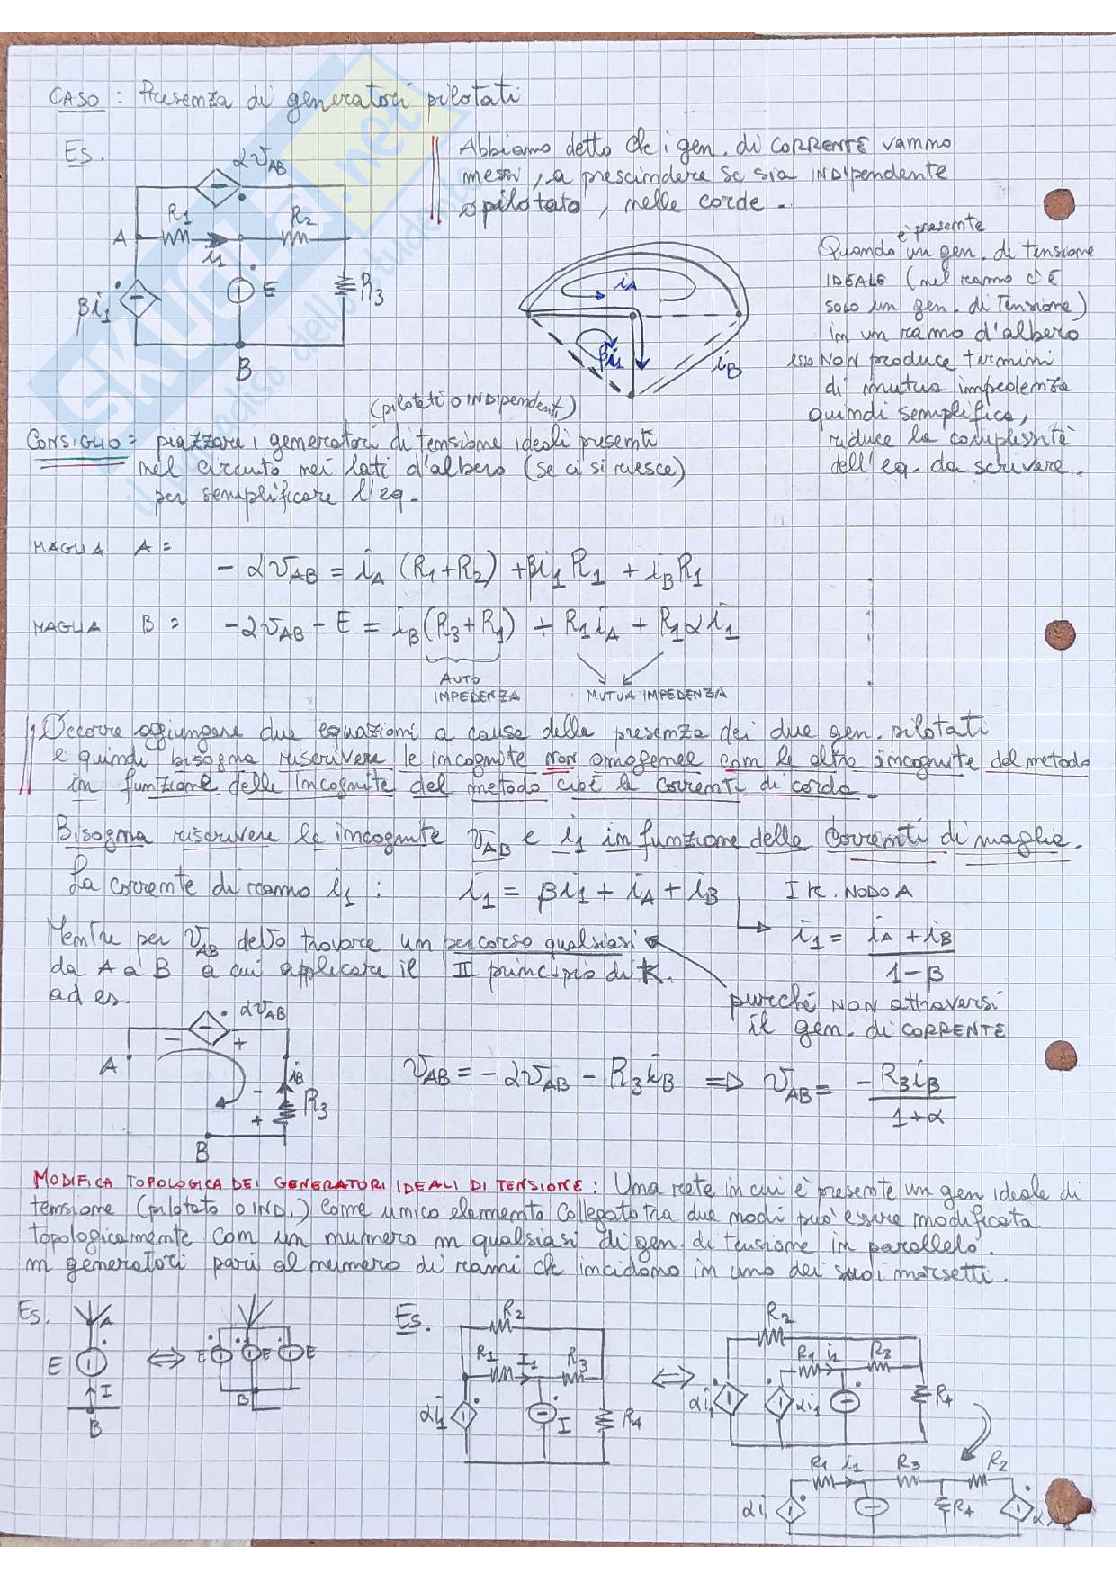 CASO : Presenza di generatori pilotati
Es.
αv_AB
R1
R2
A
i1
E
R3
βi1
B
Abbiamo detto che i gen. di CORRENTE vanno
messi, a prescindere se sia INDIPENDENTE
o pilotato, nelle corde.
iA
βi1
iB
è presente
Quando un gen. di tensione
IDEALE (nel ramo c'è
solo un gen. di Tensione)
in un ramo d'albero
esso NON produce termini
di mutua impedenza
quindi semplifica,
riduce la complessità
dell'eq. da scrivere.
(pilotati o INDipendenti)
CONSIGLIO = piazzare i generatori di tensione ideali presenti
nel circuito nei lati d'albero (se ci si riesce)
per semplificare l'eq.
MAGLIA A =
- αv_AB = iA (R1+R2) + βi1 R1 + iB R1
MAGLIA B =
- αv_AB - E = iB (R3+R1) + R1 iA + R1 α i1
AUTO
IMPEDENZA
MUTUA IMPEDENZA
Occorre aggiungere due equazioni a causa della presenza dei due gen. pilotati
e quindi bisogna riscrivere le incognite non omogenee con le altre incognite del metodo
in funzione delle incognite del metodo cioè le correnti di corda.
Bisogna riscrivere le incognite v_AB e i1 in funzione delle correnti di maglie.
La corrente di ramo i1 : i1 = βi1 + iA + iB I K. NODO A
i1 = (iA + iB) / (1-β)
Mentre per v_AB devo trovare un percorso qualsiasi
da A a B a cui applicare il II principio di K.
ad es.
purché NON attraversi
il gen. di CORRENTE
αv_AB
A
iB
R3
B
v_AB = - αv_AB - R3 iB ⇒ v_AB = - R3 iB / (1+α)
MODIFICA TOPOLOGICA DEI GENERATORI IDEALI DI TENSIONE : Una rete in cui è presente un gen ideale di
tensione (pilotato o IND.) come unico elemento collegato tra due nodi può essere modificata
topologicamente con un numero m qualsiasi di gen. di tensione in parallelo.
m generatori pari al numero di rami che incidono in uno dei suoi morsetti.
Es.
A
E
I
B
⇔
E E E
B
Es.
R2
R1 I1 R3
αi1
I
R4
⇔
R2
R1 i1 R3
αi1
αi1
R4
R1 i1 R3 R2
αi1
R4
α
SKUola.net